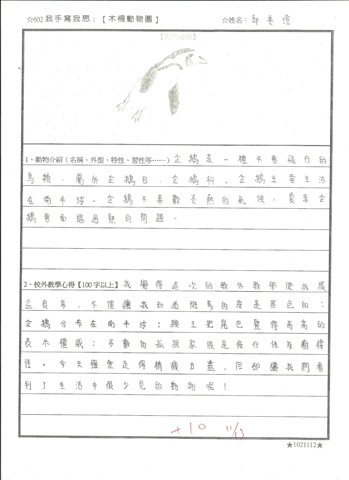 ☆602我手寫我思:【木柵動物園】 ☆姓名:
1、動物介紹(名稱、外型、特性、習性等……) 企鵝是一種不會飛行的
鳥類,屬於企鵝目,企鵝科,企鵝主要生活
在南半球。企鵝不喜歡太熱的氣候,夏季企
鵝會面臨過熱的問題。
2、校外教學心得【100字以上】 我覺得這次的校外教學使我獲
益良多,不僅讓我知道斑馬的
企鵝分布在南半球;猴王把尾巴翹得高高的
表示權威;多數的狐猴家族是夜行性
性。今天雖然走得精疲力盡,但卻讓我們看
到了生活中很少見的動物呢!
+10 11/13
★1021112★